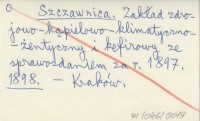 O Szczawnica. Zakład zdro-
jowo-kąpielowo-klimatyczno-
-żentyczny i kefirowy ze
sprawozdaniem za r. 1897.
1898. – Kraków.